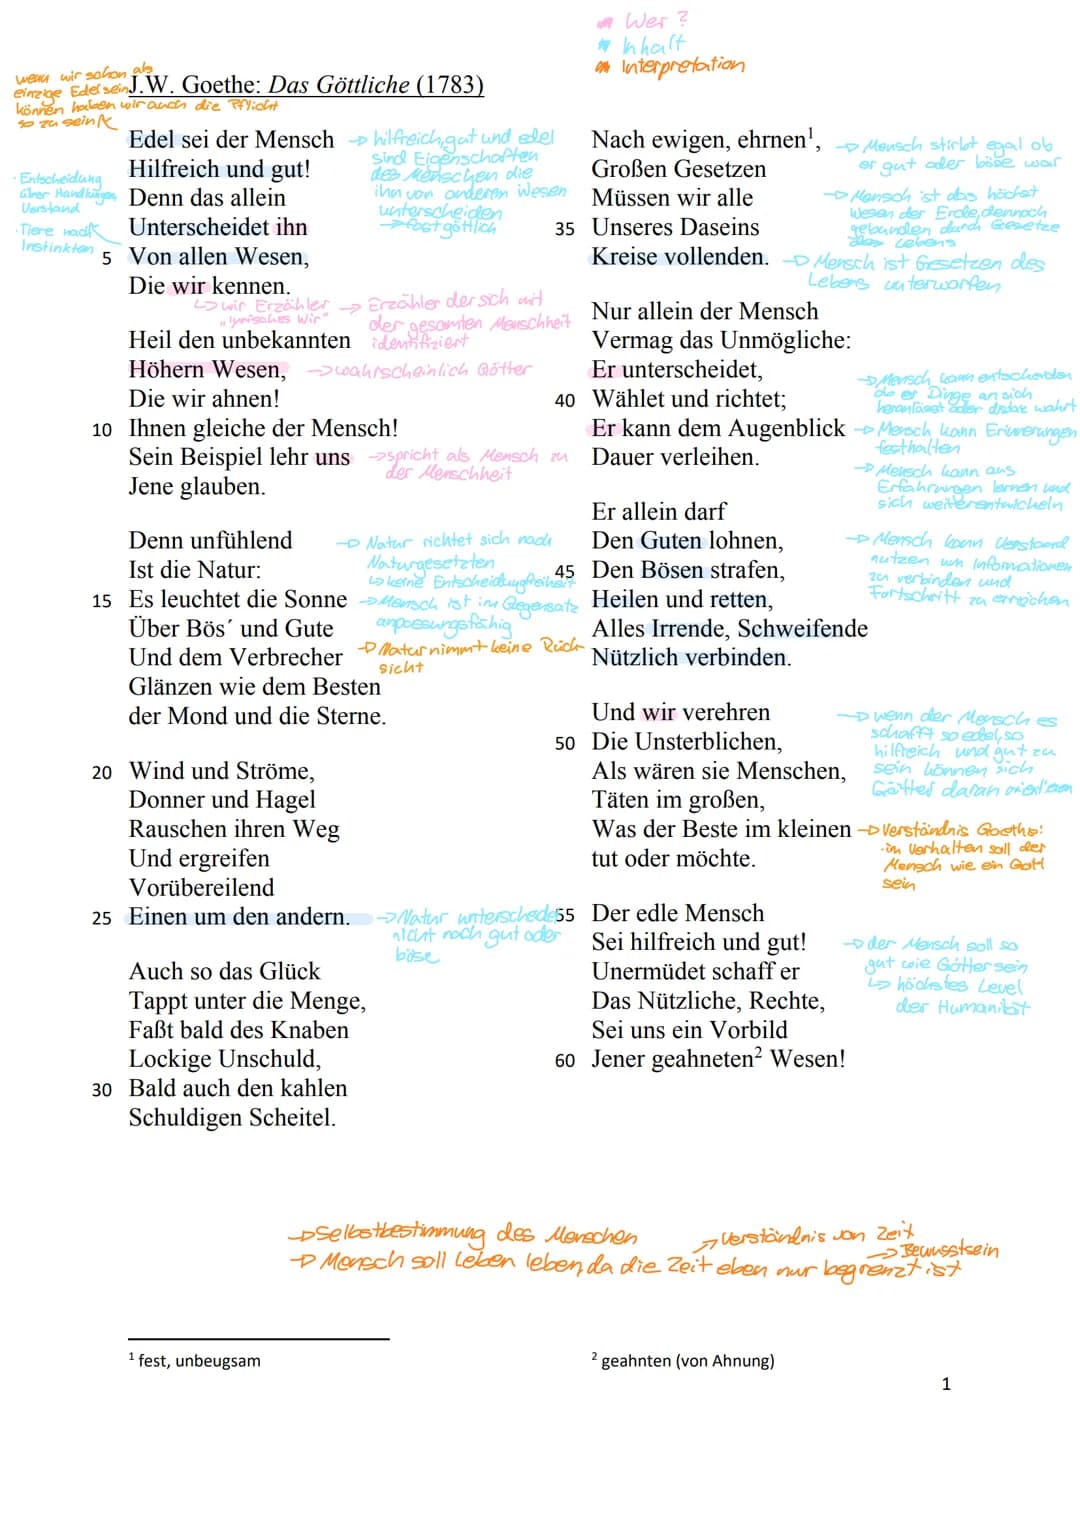 Wer?
Inhalt
Interpretation
wenn wir schon als
einzige Edel sein
können haben wir auch die Pflicht
so zu sein
J.W. Goethe: Das Göttliche (1783)
Edel sei der Mensch
Hilfreich und gut!
Denn das allein
Unterscheidet ihn
5 Von allen Wesen,
Die wir kennen.
→ hilfreich, gut und edel
sind Eigenschaften
des Menschen die
ihn von anderen Wesen
unterscheiden
→ fast göttlich
· Entscheidung
über Handlungen
Verstand
· Tiere nach
Instinkten
↳ wir Erzähler → Erzähler der sich mit
„lyrisches Wir"
der gesamten Menschheit
identifiziert
Heil den unbekannten
Höhern Wesen,
→ wahrscheinlich Götter
Die wir ahnen!
10 Ihnen gleiche der Mensch!
Sein Beispiel lehr uns
→ spricht als Mensch zu
der Menschheit
Jene glauben.
Denn unfühlend
Ist die Natur:
15 Es leuchtet die Sonne
Über Bös´ und Gute
Und dem Verbrecher
Glänzen wie dem Besten
der Mond und die Sterne.
→ Natur richtet sich nach
Naturgesetzten
↳ keine Entscheidungfreiheit
→ Mensch ist im Gegensatz
anpassungsfähig
→ Natur nimmt keine Rück-
sicht
20 Wind und Ströme,
Donner und Hagel
Rauschen ihren Weg
Und ergreifen
Vorübereilend
25 Einen um den andern.
→ Natur unterscheidet
nicht nach gut oder
böse
Auch so das Glück
Tappt unter die Menge,
Faßt bald des Knaben
Lockige Unschuld,
30 Bald auch den kahlen
Schuldigen Scheitel.
Nach ewigen, ehrnen¹,
Großen Gesetzen
Müssen wir alle
35 Unseres Daseins
Kreise vollenden.
→ Mensch stirbt egal ob
er gut oder böse war
→ Mensch ist das höchst
Wesen der Erde, dennoch
gebunden durch Gesetze
des Lebens
→ Mensch ist Gesetzen des
Lebens unterworfen
Nur allein der Mensch
Vermag das Unmögliche:
Er unterscheidet,
40 Wählet und richtet;
Er kann dem Augenblick
Dauer verleihen.
→ Mensch kann entscheiden
ob er Dinge an sich
heranlässt oder wahrt
→ Mensch kann Erinnerungen
festhalten
→ Mensch kann aus
Erfahrungen lernen und
sich weiterentwickeln
Er allein darf
Den Guten lohnen,
45 Den Bösen strafen,
Heilen und retten,
Alles Irrende, Schweifende
Nützlich verbinden.
→ Mensch kann Verstand
nutzen um Informationen
zu verbinden und
Fortschritt zu erreichen
Und wir verehren
50 Die Unsterblichen,
Als wären sie Menschen,
Täten im großen,
Was der Beste im kleinen
tut oder möchte.
→ wenn der Mensch es
schafft so edel, so
hilfreich und gut zu
sein können sich
Götter daran orientieren
→ Verständnis Goethe:
· im Verhalten soll der
Mensch wie ein Gott
sein
55 Der edle Mensch
Sei hilfreich und gut!
Unermüdet schaff er
Das Nützliche, Rechte,
Sei uns ein Vorbild
60 Jener geahneten² Wesen!
→ der Mensch soll so
gut wie Götter sein
↳ höchstes Level
der Humanität
→ Selbstbestimmung des Menschen
→ Verständnis von Zeit
→ Bewusstsein
→ Mensch soll Leben leben da die Zeit eben nur begrenzt ist
¹ fest, unbeugsam
² geahnten (von Ahnung)
1